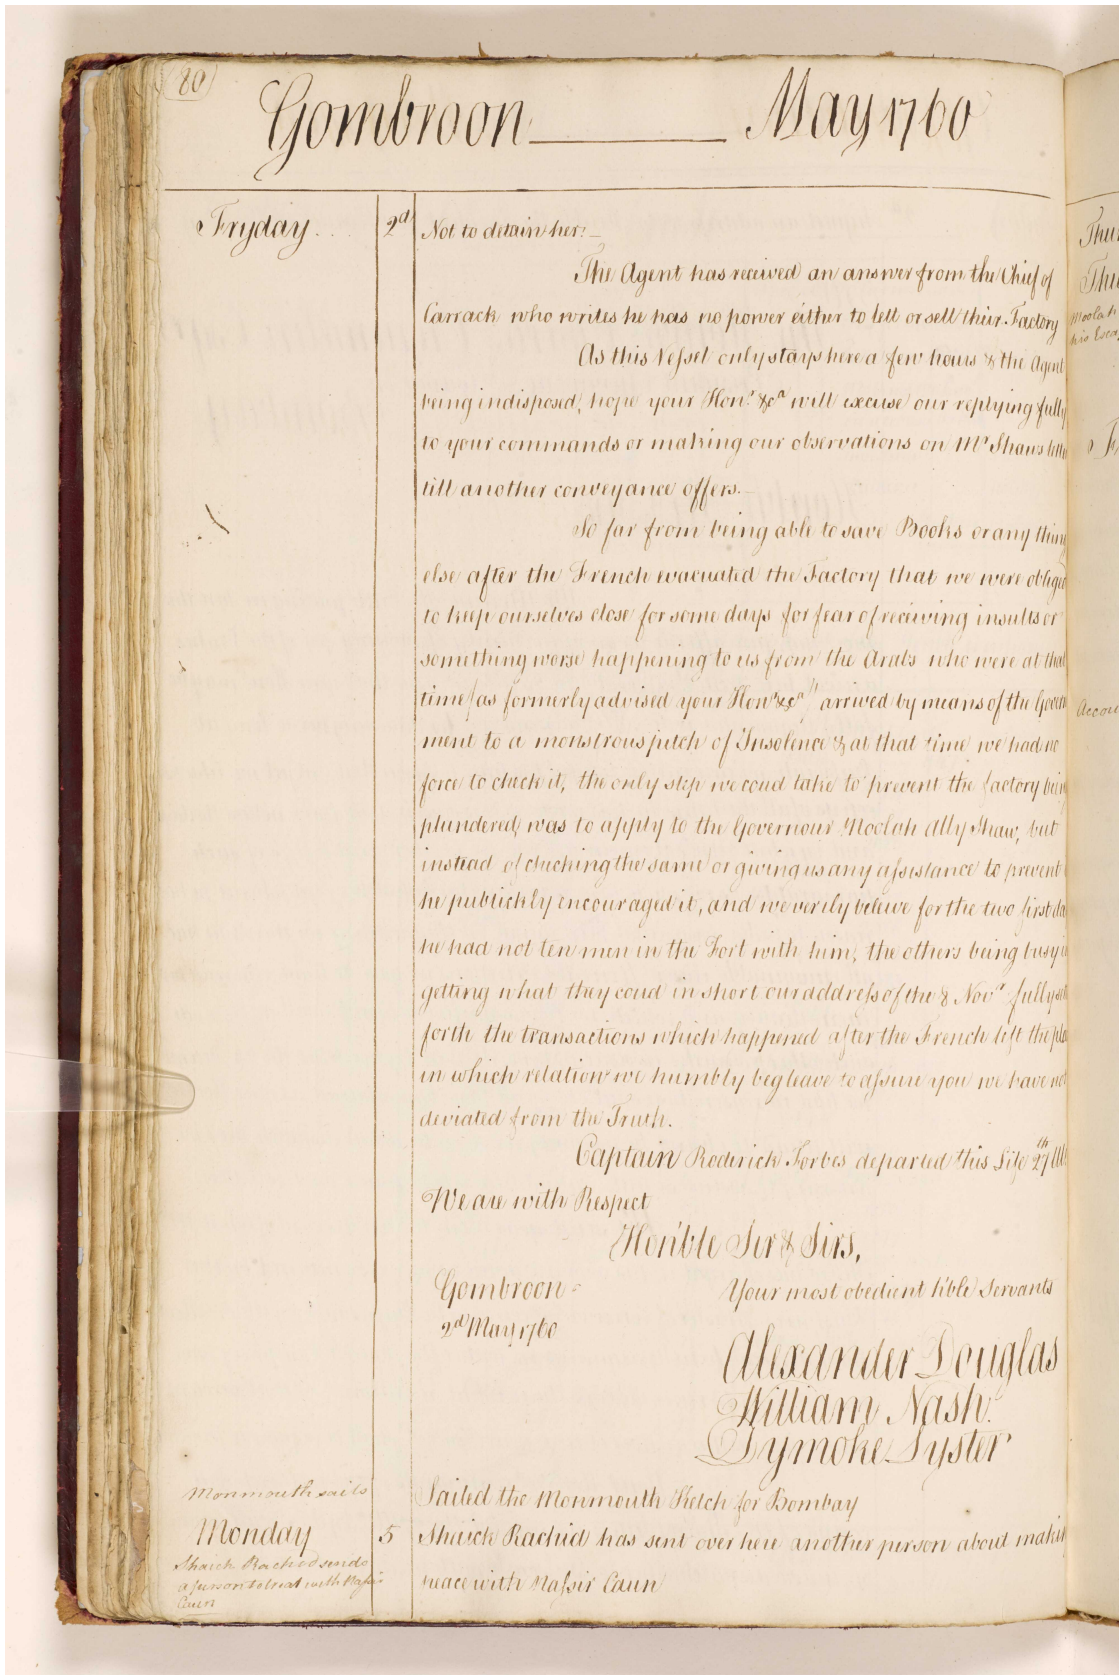 80
Gombroon May 1760
Fryday 2d Not to detain her.
The Agent has received an answer from the Chief of
Carrack who writes he has no power either to lett or sell their Factory
As this Vessel only stays here a few hours & the Agent
being indisposed, hope your Honr. &ca. will excuse our replying fully
to your commands or making our observations on Mr Shaws
till another conveyance offers.
So far from being able to save Books or any thing
else after the French evacuated the Factory that we were obliged
to keep ourselves close for some days for fear of receiving insults or
something worse happening to us from the Arabs who were at that
time (as formerly advised your Honr &ca) arrived by means of the Govern
ment to a monstrous pitch of Insolence & at that time we had no
force to check it, the only step we coud take to prevent the factory being
plundered, was to apply to the Governour Moolah Ally Shaw, but
instead of checking the same or giving us any assistance to prevent
he publickly encouraged it, and we verily beleive for the two first da
he had not ten men in the Fort with him, the others being busy
getting what they coud in short our address of the 8 Novr fully
forth the transactions which happened after the French left the pla
in which relation we humbly beg leave to assure you we have not
deviated from the Truth.
Captain Roderick Forbes departed this Life 27th Ult
We are with Respect
Hon'ble Sir & Sirs,
Gombroon Your most obedient h'ble Servants
2d May 1760
Alexander Douglas
William Nash
Dymoke Lyster
Monmouth sails Sailed the Monmouth Ketch for Bombay
Monday 5 Shaick Rachid has sent over here another person about making
Shaick Rachid sends
a person to treat with Nassir
Caun
peace with Nassir Caun
Moolah
his
Accou